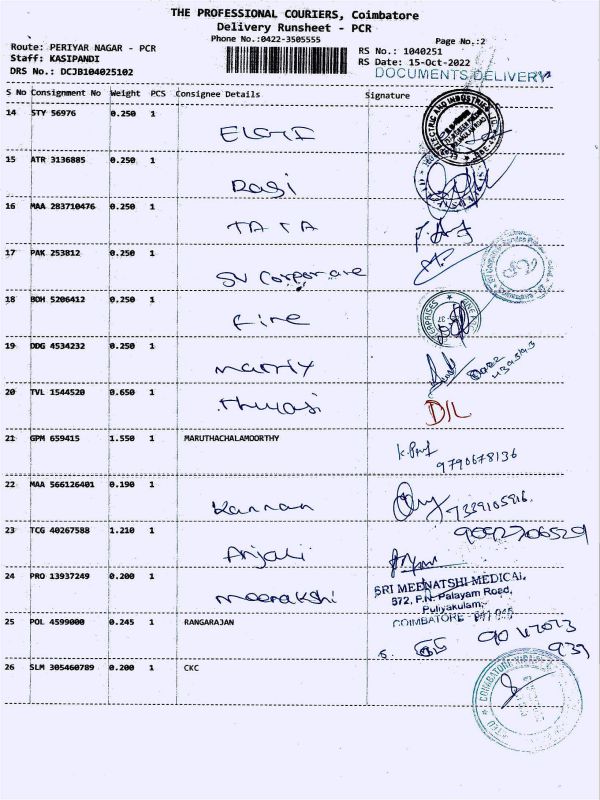 THE PROFESSIONAL COURIERS, Coimbatore
Delivery Runsheet - PCR
Phone No.:0422-3505555
Page No.:2
Route: PERIYAR NAGAR - PCR
RS No.: 1040251
Staff: KASIPANDI
RS Date: 15-Oct-2022
DRS No.: DCJB104025102
DOCUMENTS DELIVERY
S No Consignment No Weight PCS Consignee Details Signature
14 STY 56976 0.250 1 ELGI
15 ATR 3136885 0.250 1 Rasi
16 MAA 283710476 0.250 1 TATA
17 PAK 253812 0.250 1 SV Corporate
18 BOH 5206412 0.250 1 Fine
19 DDG 4534232 0.250 1 Matrix
20 TVL 1544520 0.650 1 Thulasi D/L
21 GPM 659415 1.550 1 MARUTHACHALAMOORTHY
9790678136
22 MAA 566126401 0.190 1 Kannan 7339105916
23 TCG 40267588 1.210 1 Anjali
24 PRO 13937249 0.200 1 Meenakshi
SRI MEENATSHI MEDICAL
572, P.N. Palayam Road,
Puliyakulam,
COIMBATORE
25 POL 4599000 0.245 1 RANGARAJAN
26 SLM 305460789 0.200 1 CKC